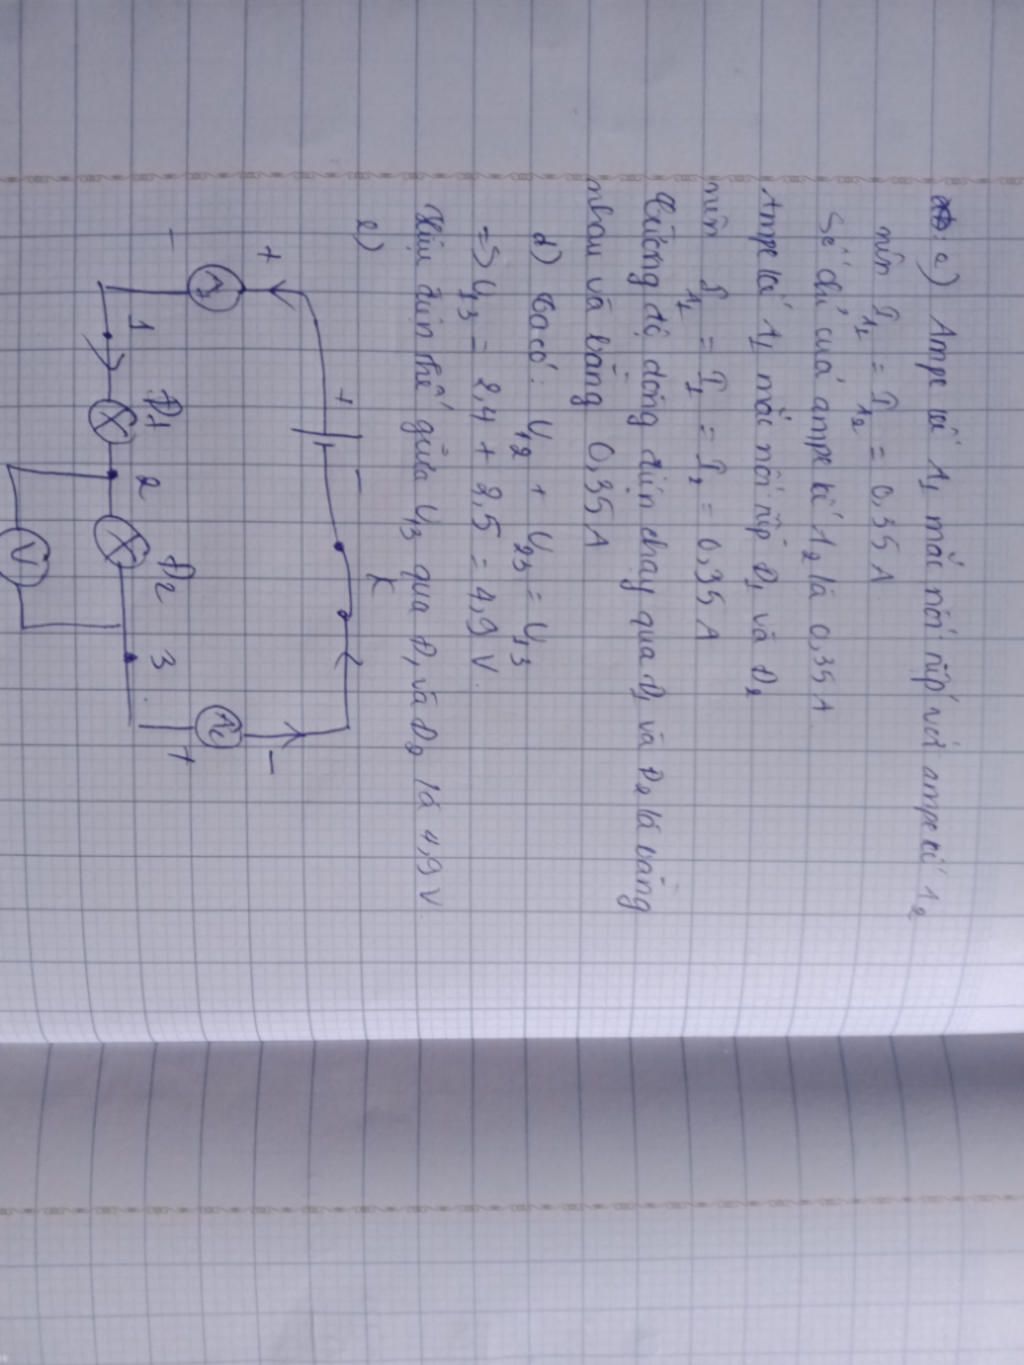 c) Ampe kế A1 mắc nối tiếp với ampe kế A2
nên I_A1 = I_A2 = 0,35 A
Số chỉ của ampe kế A2 là 0,35 A
Ampe kế A1 mắc nối tiếp Đ1 và Đ2
nên I_A1 = I1 = I2 = 0,35 A
Cường độ dòng điện chạy qua Đ1 và Đ2 là bằng
nhau và bằng 0,35 A
d) Ta có: U12 + U23 = U13
=> U13 = 2,4 + 2,5 = 4,9 V.
Hiệu điện thế giữa U13 qua Đ1 và Đ2 là 4,9 V.
e)
+ - K
+ -
A1 A2
- +
1 Đ1 2 Đ2 3
V